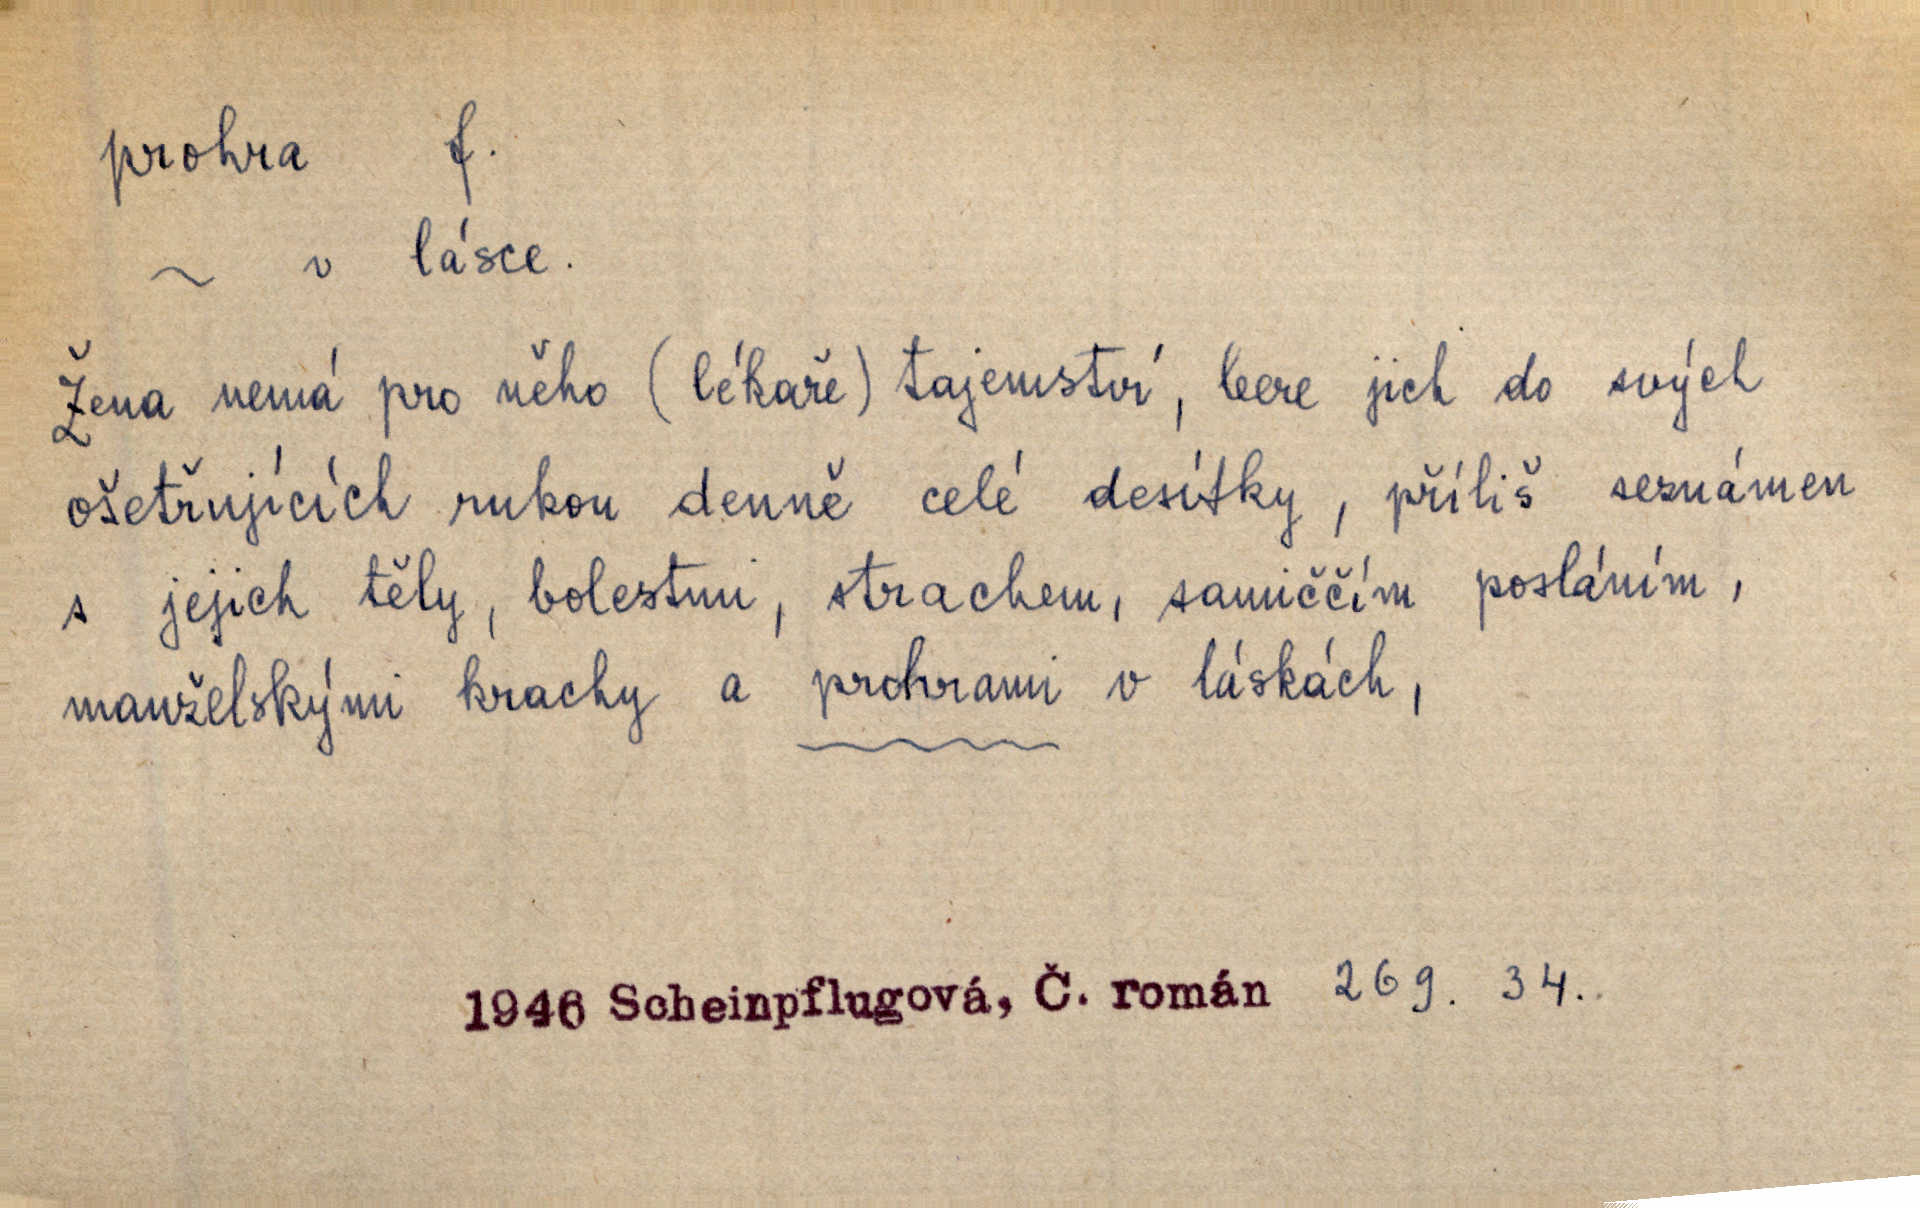 prohra f.
~ v lásce.
Žena nemá pro něho (lékaře) tajemství, bere jich do svých
ošetřujících rukou denně celé desítky, příliš seznámen
s jejich těly, bolestmi, strachem, samiččím posláním,
manželskými krachy a prohrami v láskách,
1946 Scheinpflugová, Č. román 269. 34.